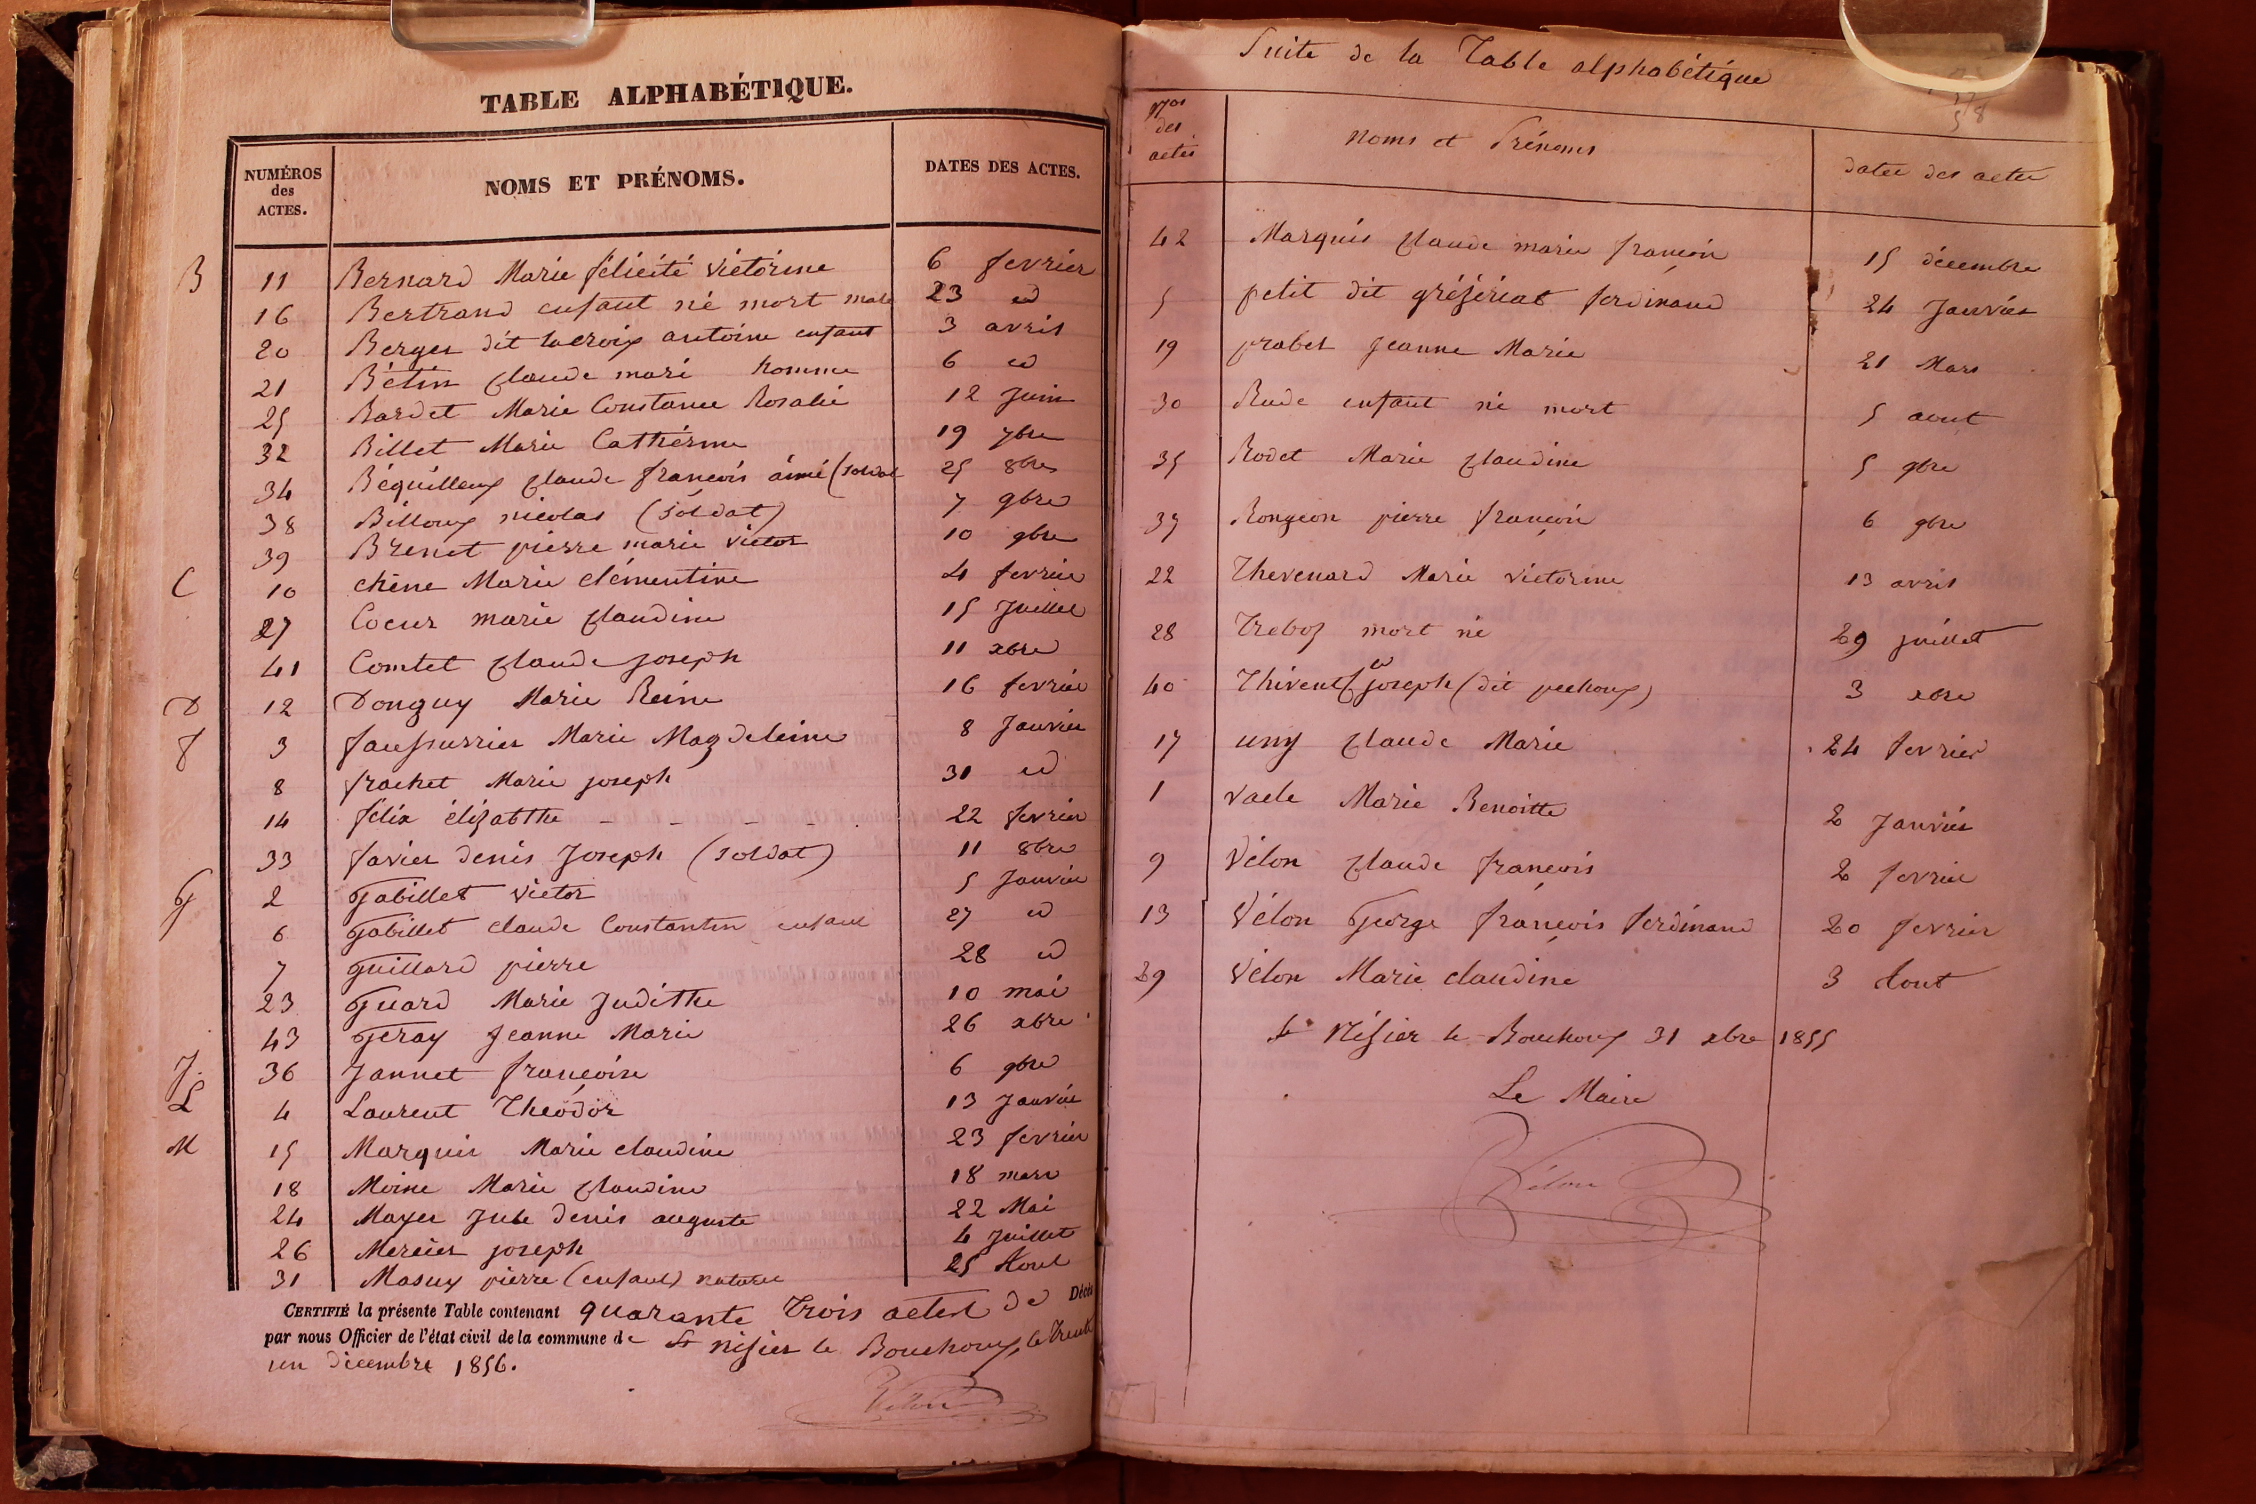 TABLE ALPHABÉTIQUE.
NUMÉROS des ACTES. NOMS ET PRÉNOMS. DATES DES ACTES.
B 11 Bernard Marie félicité victorine 6 fevrier
16 Bertrand enfant né mort male 23 id
20 Berger dit lacroix antoine enfant 3 avril
21 Bétin claude mari homme 6 id
25 Bardet Marie Constance Rosalie 12 Juin
32 Billet Marie Cathérine 19 7bre
34 Béquilleux claude françois aimé (soldat 25 8bre
38 Billoux nicolas (soldat) 7 9bre
39 Brenet pierre marie victor 10 9bre
C 10 chêne Marie clémentine 4 fevrier
27 Coeur marie claudine 15 Juillet
41 Comtet claude Joseph 11 xbre
D 12 Donguy Marie Reine 16 fevrier
F 3 faussurrier Marie Magdeleine 8 Janvier
8 frachet Marie joseph 31 id
14 félix élizabthe - - - - . 22 fevrier
33 favier denis Joseph (soldat) 11 8bre
G 2 Gabillet victor 5 Janvier
6 Gabillet claude Constantin enfant 27 id
7 Guillard pierre 28 id
23 Guard Marie Judithe 10 mai
43 Geray Jeanne Marie 26 xbre
J. 36 Jannet françoise 6 9bre
L 4 Laurent Théodor 13 Janvier
M 15 Marquis Marie claudine 23 fevrier
18 Moine Marie claudine 18 mars
24 Mayer Jule denis auguste 22 Mai
26 Mercier joseph 4 Juillet
31 Masuy pierre (enfant) naturel 25 Aout
CERTIFIÉ la présente Table contenant quarante trois actes de Décès
par nous Officier de l'état civil de la commune de St nisier le Bouchoux, le trente
un décembre 1856.
Vélon
Suite de la Table alphabétique
Nos des actes noms et Prénoms dates des actes
42 Marquis claude marie françois 15 décembre
5 petit dit grézériat ferdinand 24 Janvier
19 prabel Jeanne Marie 21 Mars
30 Rude enfant né mort 5 aout
35 Rodet Marie claudine 5 9bre
37 Rongeon pierre françois 6 9bre
22 Thevenard Marie victorine 13 avril
28 Treboz mort né 29 juillet
40 Thivent Cl joseph (dit pechoux) 3 xbre
17 uny claude Marie 24 fevrier
1 vacle Marie Benoitte 2 Janvier
9 Vélon claude françois 2 fevrier
13 Vélon George françois ferdinand 20 fevrier
29 Vélon Marie claudine 3 Aout
St Nisier le Bouchoux 31 xbre 1855
Le Maire
Vélon